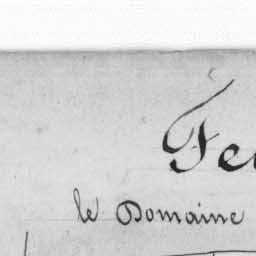 Fe
le Domaine